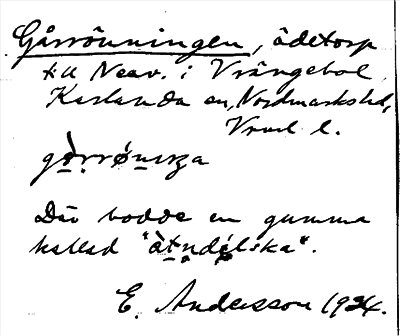 Gårrönningen, ödetorp
till Neav. i Vrängebol,
Karlanda sn, Nordmarks hd,
Vrml l.
gàrrønıŋa
Där bodde en gumma
kallad "àtndǽlska".
E. Andersson 1934.